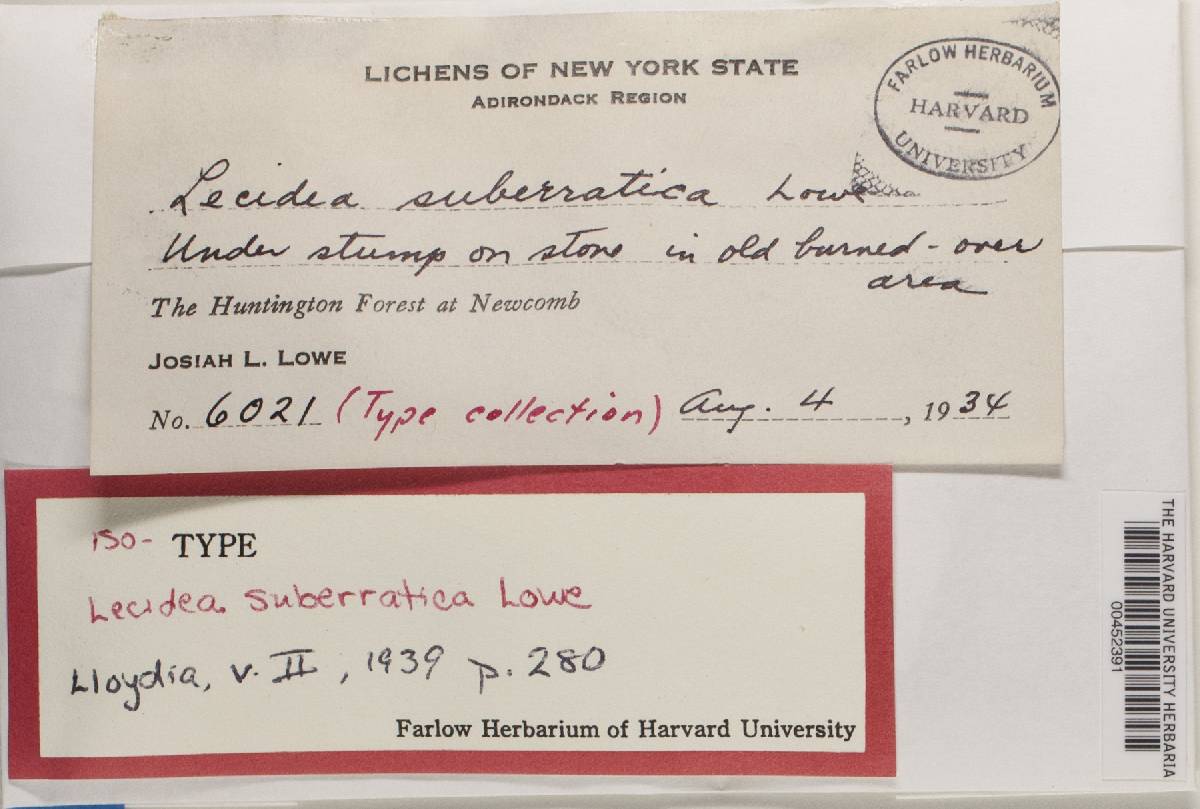 LICHENS OF NEW YORK STATE
ADIRONDACK REGION
FARLOW HERBARIUM
HARVARD
UNIVERSITY
Lecidea suberratica Lowe
Under stump on stone in old burned-over
area
The Huntington Forest at Newcomb
JOSIAH L. LOWE
No. 6021 (Type collection) Aug. 4, 1934
iso- TYPE
Lecidea suberratica Lowe
Lloydia, v. II, 1939 p. 280
Farlow Herbarium of Harvard University
THE HARVARD UNIVERSITY HERBARIA
00452391